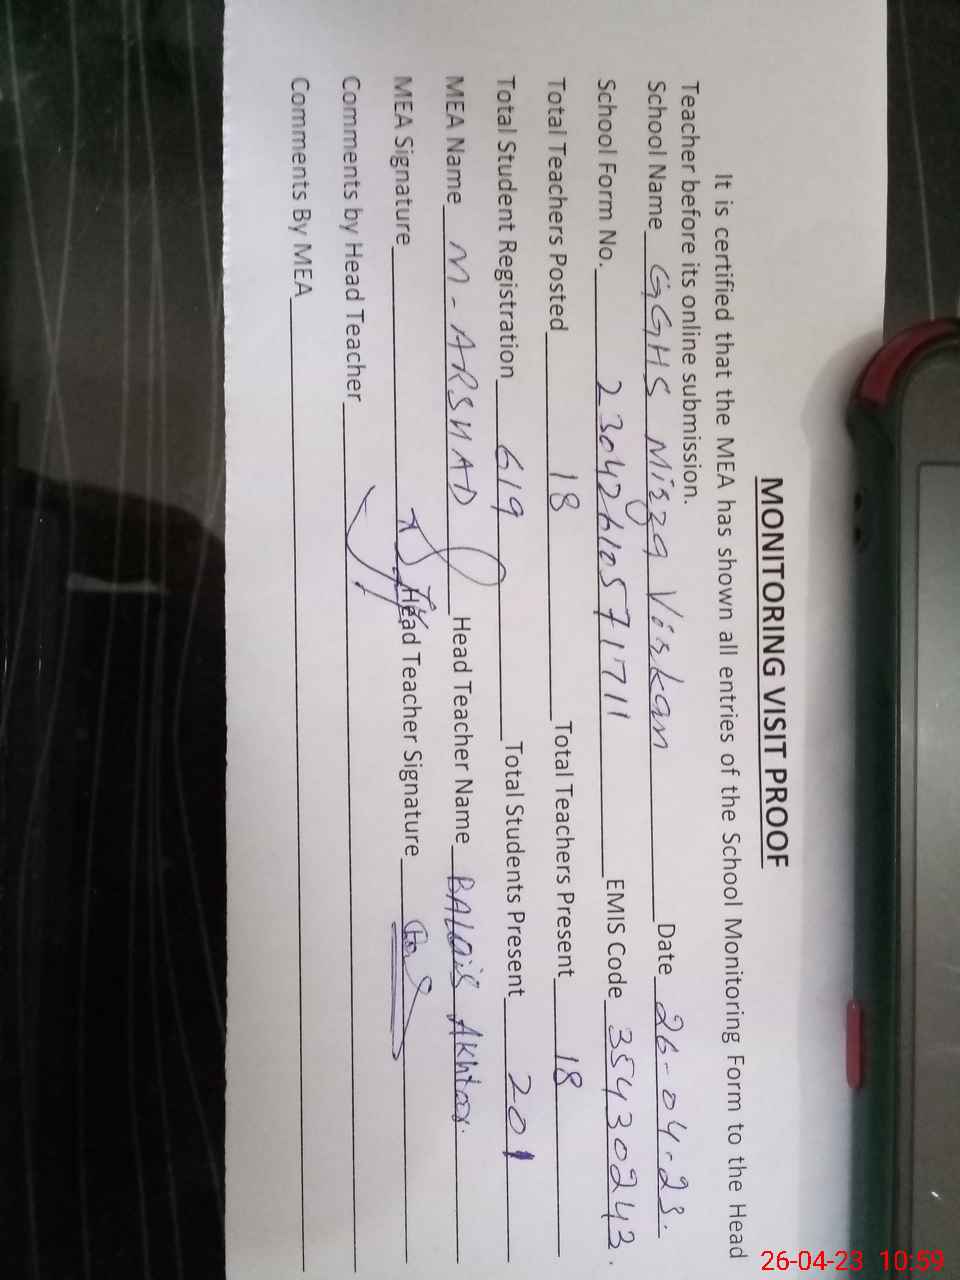 MONITORING VISIT PROOF
It is certified that the MEA has shown all entries of the School Monitoring Form to the Head
Teacher before its online submission.
School Name GGHS Mirza Virkan Date 26-04-23.
School Form No. 23042610571711 EMIS Code 35430243.
Total Teachers Posted 18 Total Teachers Present 18
Total Student Registration 619 Total Students Present 201
MEA Name M-ARSHAD Head Teacher Name BALQIS Akhtar.
MEA Signature Head Teacher Signature
Comments by Head Teacher
Comments By MEA
26-04-23 10:59